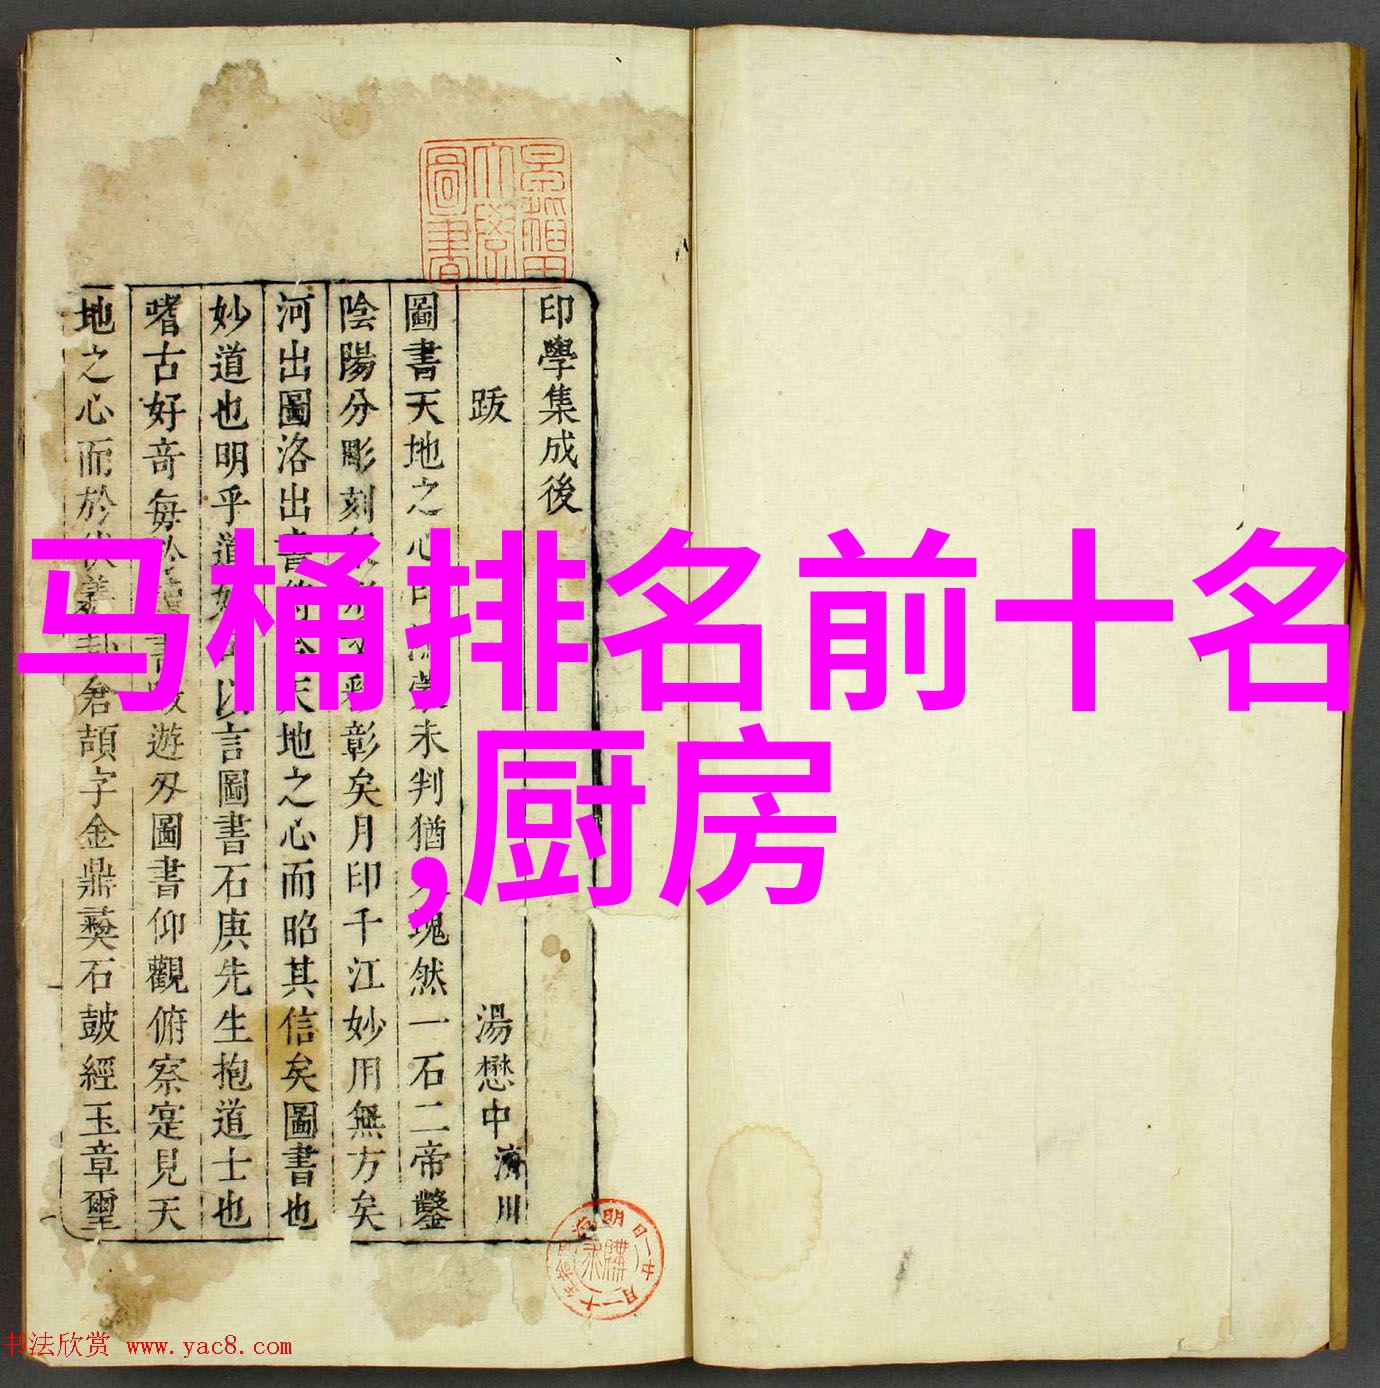 马桶排名前十名
,厨房
印學集成後
跋 湯懋中濟川
圖書天地之心未判猶塊然一石二帝鑿
陰陽分彫刻彰矣月印千江妙用無方矣
河出圖洛出書天地之心而昭其信矣圖書也
妙道也明乎道以言圖書石庚先生抱道士也
嗜古好奇每遊圖書仰觀俯察寔見天
地之心而於倉頡字金鼎彝石鼓經玉章璽
圖書
明治
書法欣赏 www.yac8.com